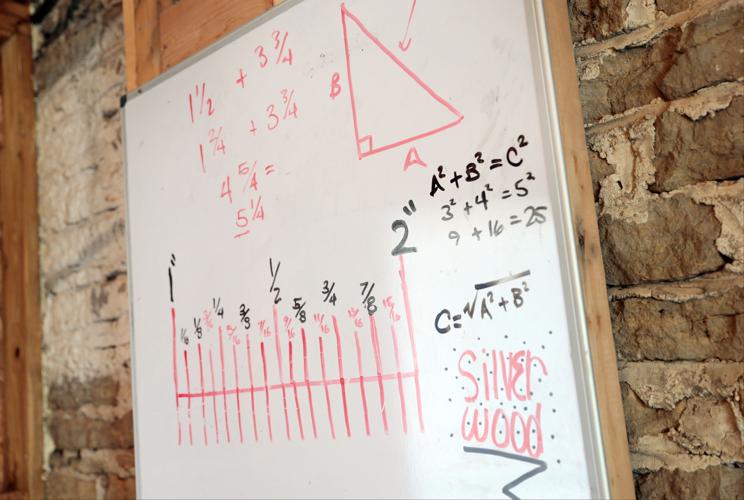 1 1/2 + 3 3/4
1 2/4 + 3 3/4
4 5/4 =
5 1/4
B
A
A² + B² = C²
3² + 4² = 5²
9 + 16 = 25
C = √A² + B²
1" 1/16 1/8 3/16 1/4 5/16 3/8 7/16 1/2 9/16 5/8 11/16 3/4 13/16 7/8 15/16 2"
Silver
wood